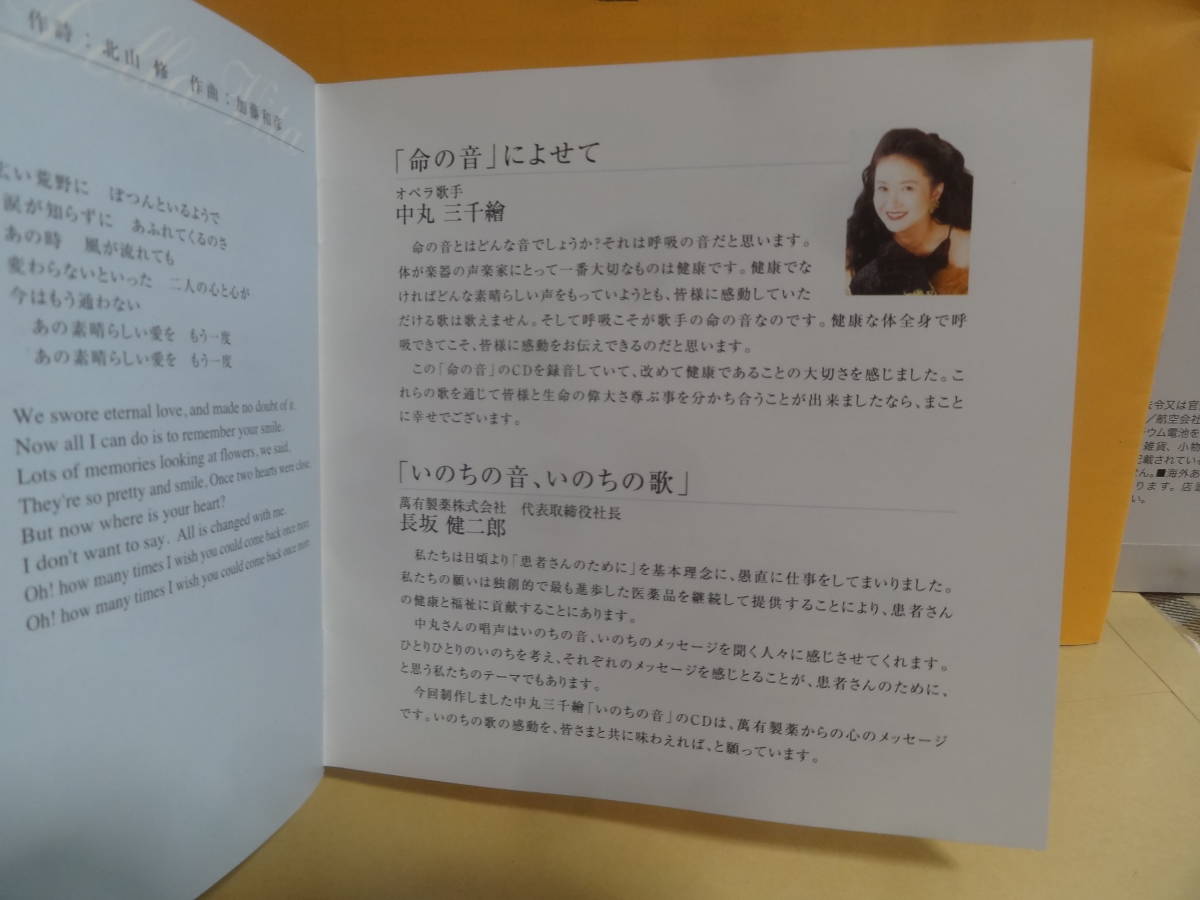 作詩：北山 修 作曲：加藤和彦
広い荒野に ぽつんといるようで
涙が知らずに あふれてくるのさ
あの時 風が流れても
変わらないといった 二人の心と心が
今はもう通わない
あの素晴らしい愛を もう一度
あの素晴らしい愛を もう一度
We swore eternal love, and made no doubt of it.
Now all I can do is to remember your smile.
Lots of memories looking at flowers, we said,
They're so pretty and smile, Once two hearts were close.
But now where is your heart?
I don't want to say. All is changed with me.
Oh! how many times I wish you could come back once more.
Oh! how many times I wish you could come back once more.
「命の音」によせて
オペラ歌手
中丸 三千繪
命の音とはどんな音でしょうか?それは呼吸の音だと思います。
体が楽器の声楽家にとって一番大切なものは健康です。健康でな
ければどんな素晴らしい声をもっていようとも、皆様に感動していた
だける歌は歌えません。そして呼吸こそが歌手の命の音なのです。健康な体全身で呼
吸できてこそ、皆様に感動をお伝えできるのだと思います。
この「命の音」のCDを録音していて、改めて健康であることの大切さを感じました。こ
れらの歌を通じて皆様と生命の偉大さ尊ぶ事を分かち合うことが出来ましたなら、まこと
に幸せでございます。
「いのちの音、いのちの歌」
萬有製薬株式会社 代表取締役社長
長坂 健二郎
私たちは日頃より「患者さんのために」を基本理念に、愚直に仕事をしてまいりました。
私たちの願いは独創的で最も進歩した医薬品を継続して提供することにより、患者さん
の健康と福祉に貢献することにあります。
中丸さんの唱声はいのちの音、いのちのメッセージを聞く人々に感じさせてくれます。
ひとりひとりのいのちを考え、それぞれのメッセージを感じとることが、患者さんのために、
と思う私たちのテーマでもあります。
今回制作しました中丸三千繪「いのちの音」のCDは、萬有製薬からの心のメッセージ
です。いのちの歌の感動を、皆さまと共に味わえれば、と願っています。
令又は官
／航空会社
ウム電池を
雑貨、小物
記載されてい
ん。■海外あ
ります。店
い。